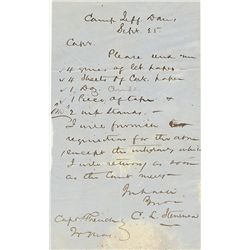 Camp Jeff Davis
Sept. 25
Capt.
Please send me
4 quires of let paper
4 Sheets of Cart. paper
1 Doz.
1 Piece of tape &
2 ink stands.
I will furnish
requisition for the above
except the inkstands which
I will return as soon
as the Court meets
C. L. Stevenson
Capt